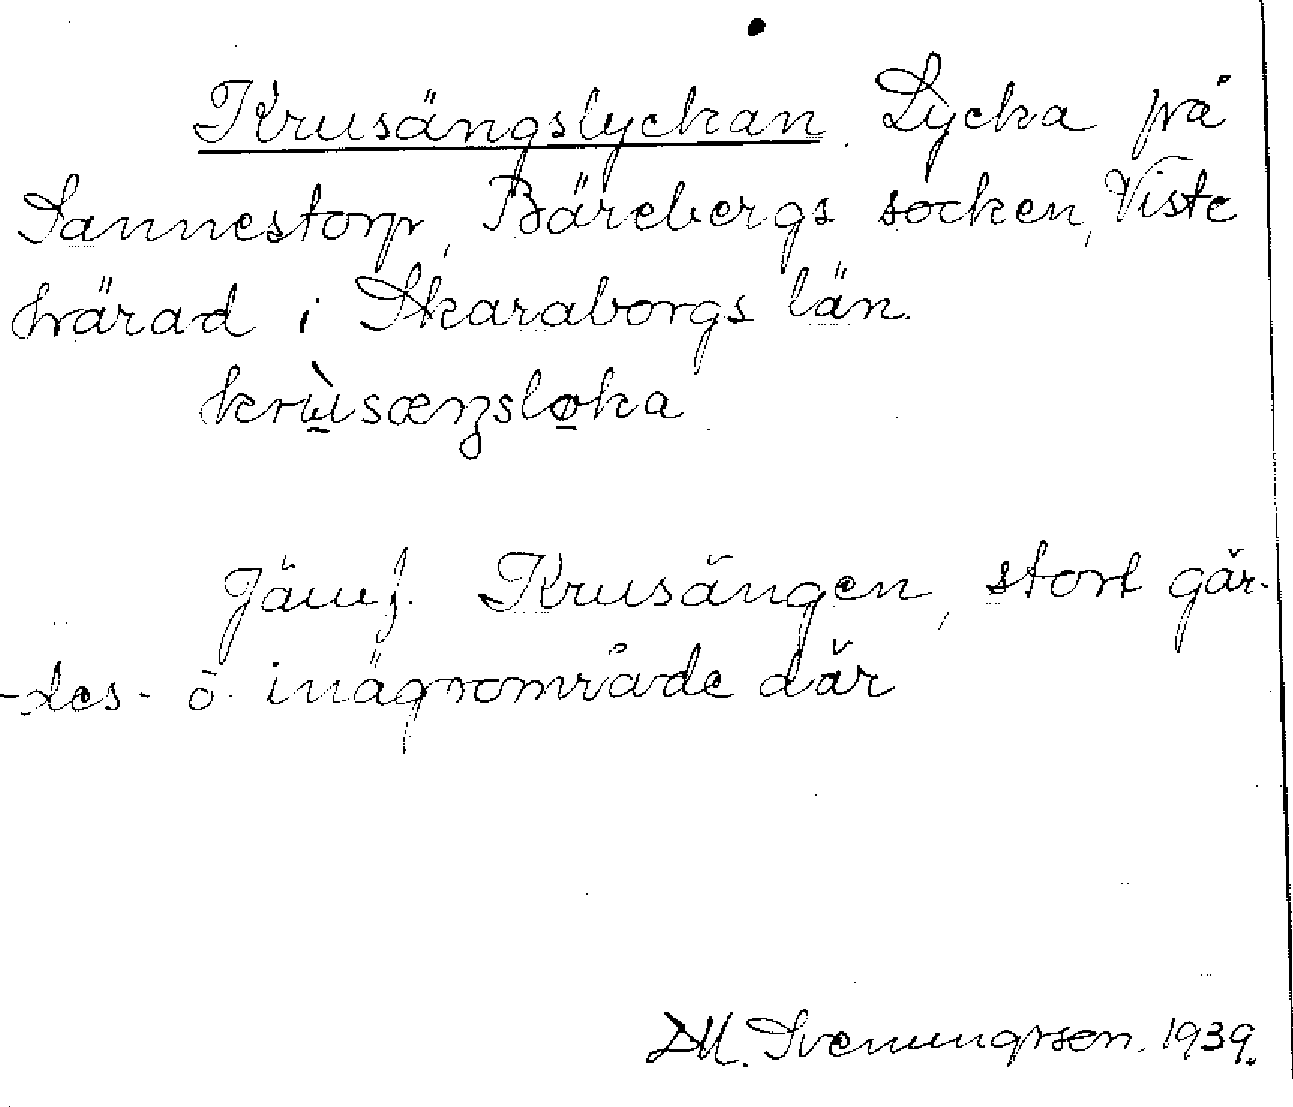 Krusängslyckan. Lycka på
Sannestorp, Bärebergs socken, Viste
härad i Skaraborgs län.
krùsæŋsløka
Jämf. Krusängen, stort går-
-des- o. inägrområde där
D.M. Svenungsson. 1939.